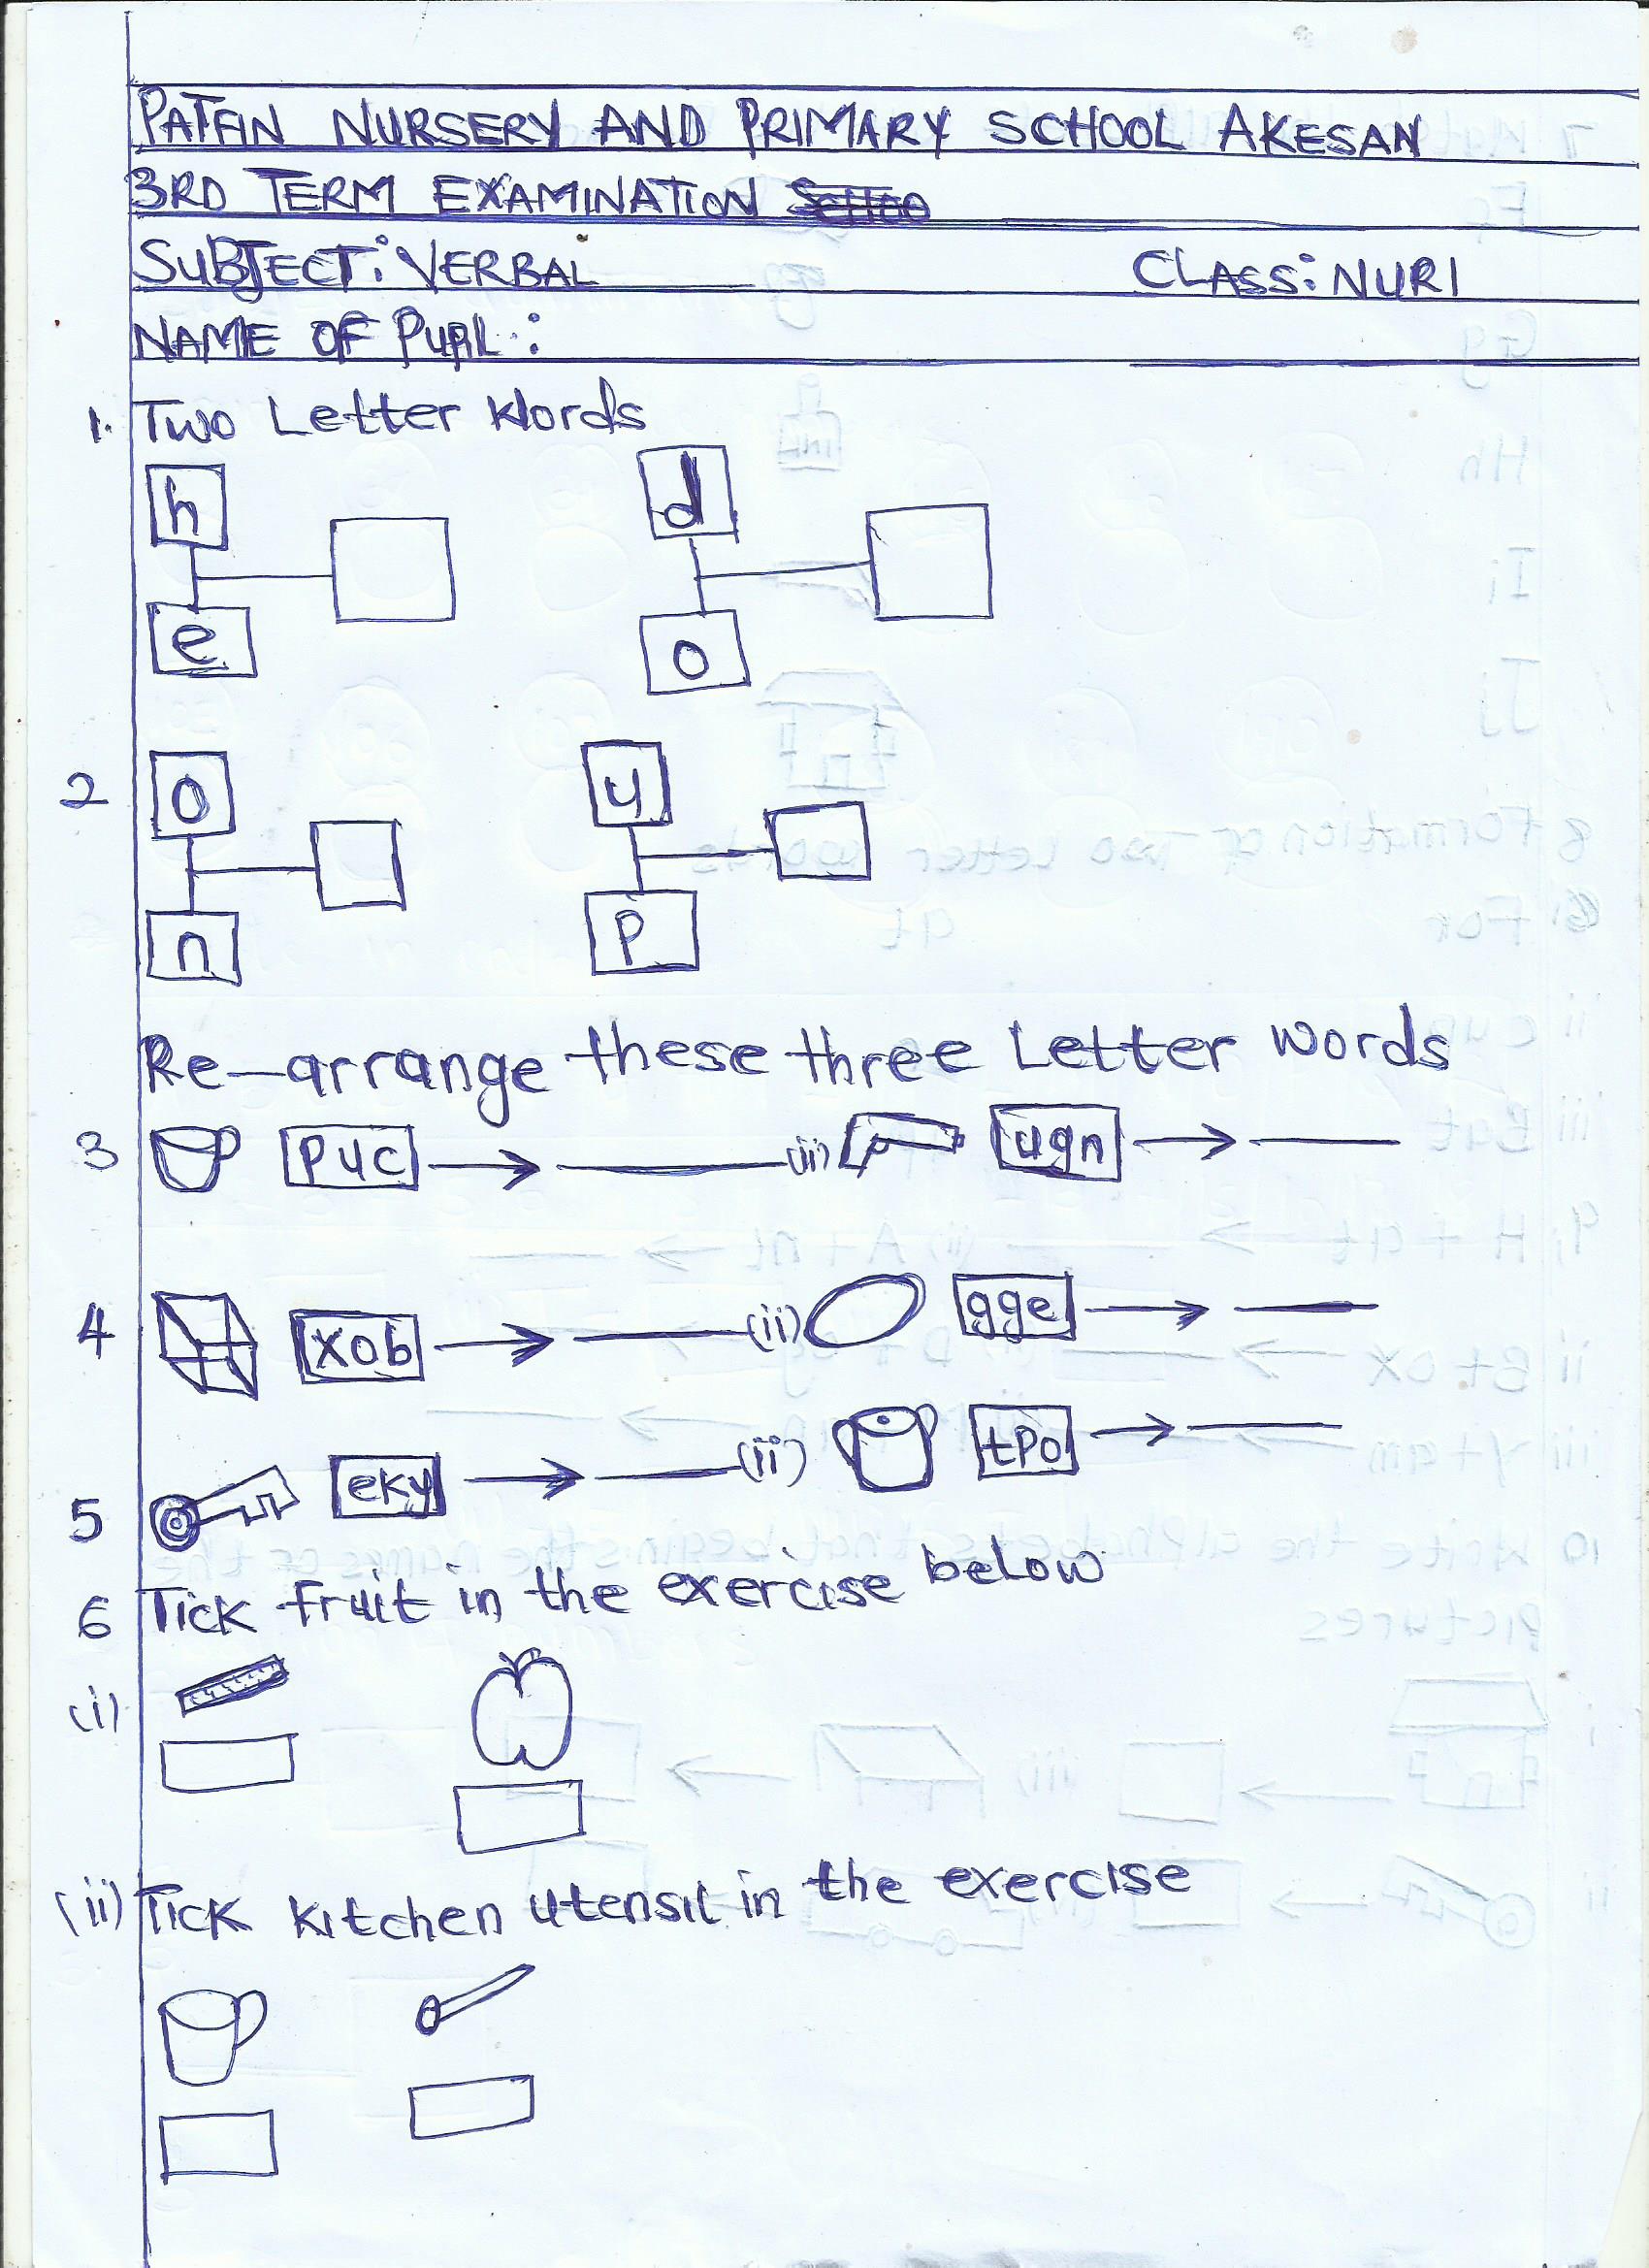 PATFIN NURSERY AND PRIMARY SCHOOL AKESAN
3RD TERM EXAMINATION
SUBJECT: VERBAL CLASS: NUR1
NAME OF PUPIL:
1. Two Letter Words
h d
e o
2 o u
n p
Re-arrange these three Letter words
3 puc (ii) ugn
4 xob (ii) gge
5 eky (ii) tpo
6 Tick fruit in the exercise below
(i)
(ii) Tick kitchen utensil in the exercise